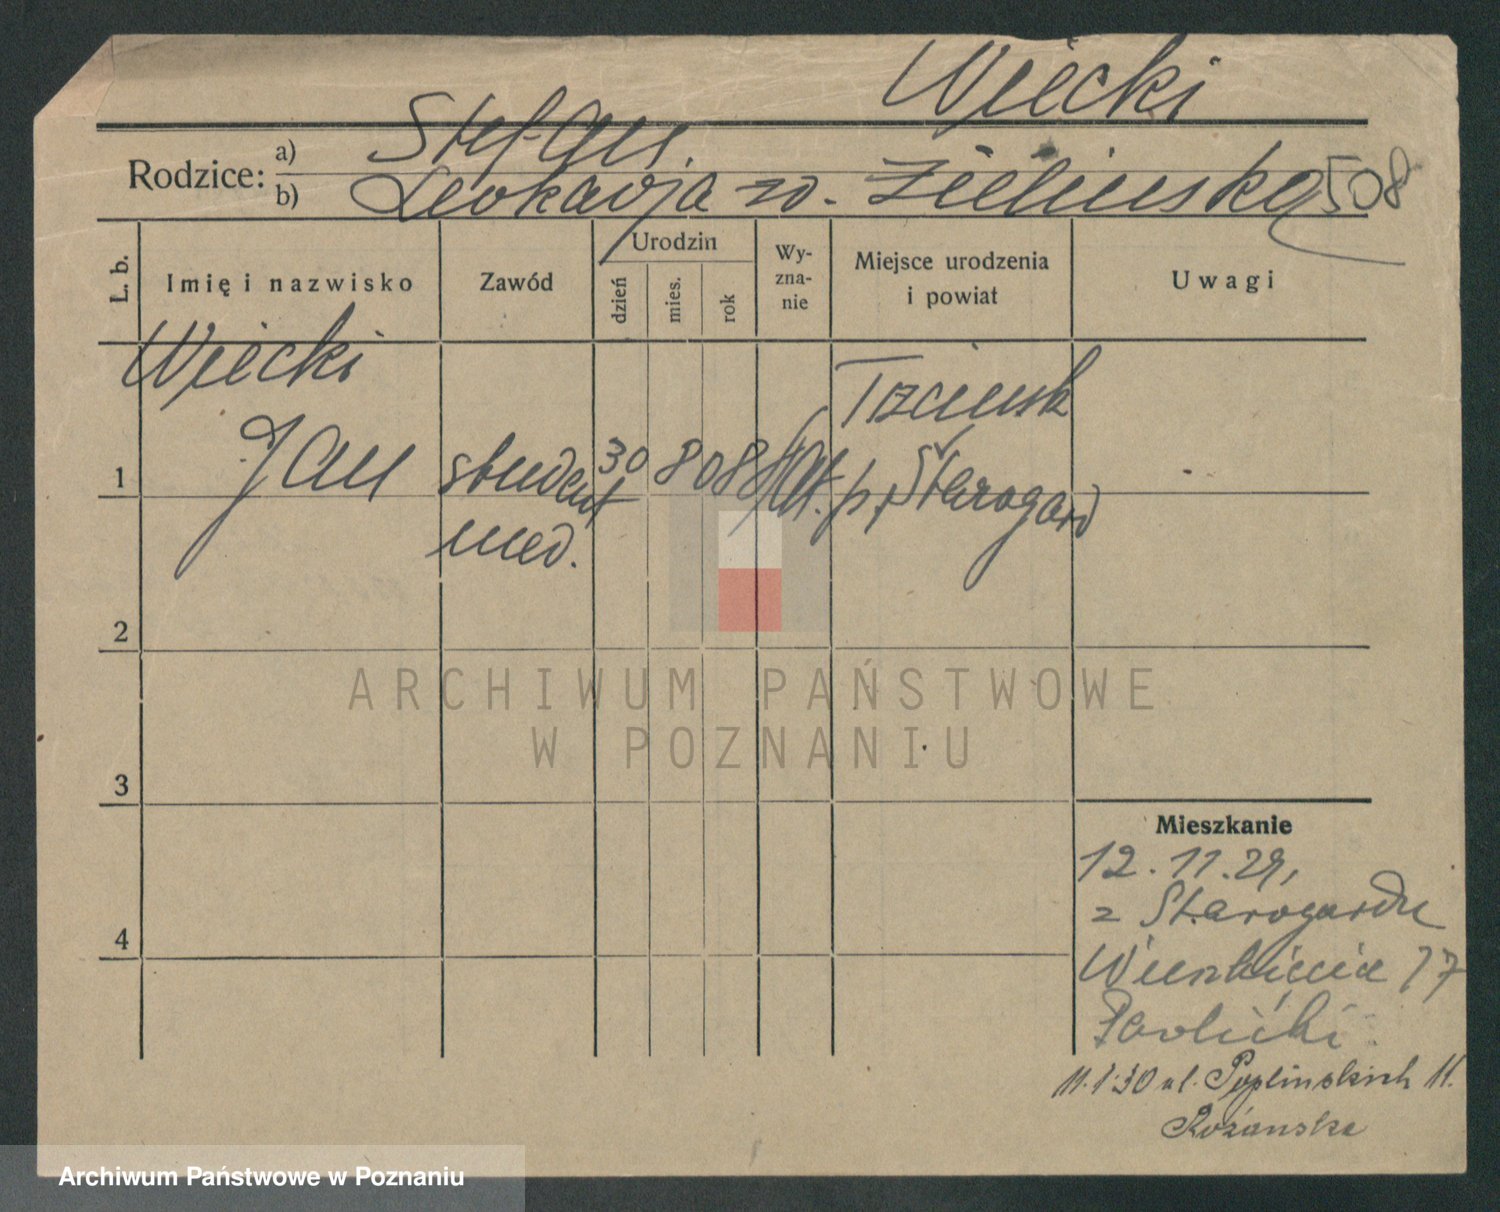 Wiecki
Rodzice: a) Stefan.
b) Leokadja zd. Zielińska 508
L. b.
Imię i nazwisko
Zawód
Urodzin
dzień
mies.
rok
Wy-
zna-
nie
Miejsce urodzenia
i powiat
Uwagi
Wiecki
Jan
1
student
med.
30 8 08 kat.
Trzcińsk
p. Starogard
2
3
4
Mieszkanie
12.11.29,
z Starogardu
77
Pawlicki
11.1.30 ul. Poplińskich 11.
Różańska
ARCHIWUM PAŃSTWOWE
W POZNANIU
Archiwum Państwowe w Poznaniu